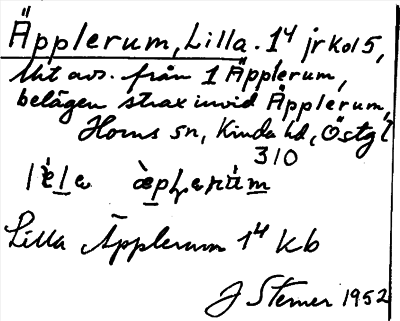 Äpplerum, Lilla. 1⁴ jrkol 5,
litt avs. från 1 Äpplerum,
belägen strax invid Äpplerum,
Horns sn, Kinda hd, Östgl
310
Lilla Äpplerum 1⁴ kb
J Sterner 1952